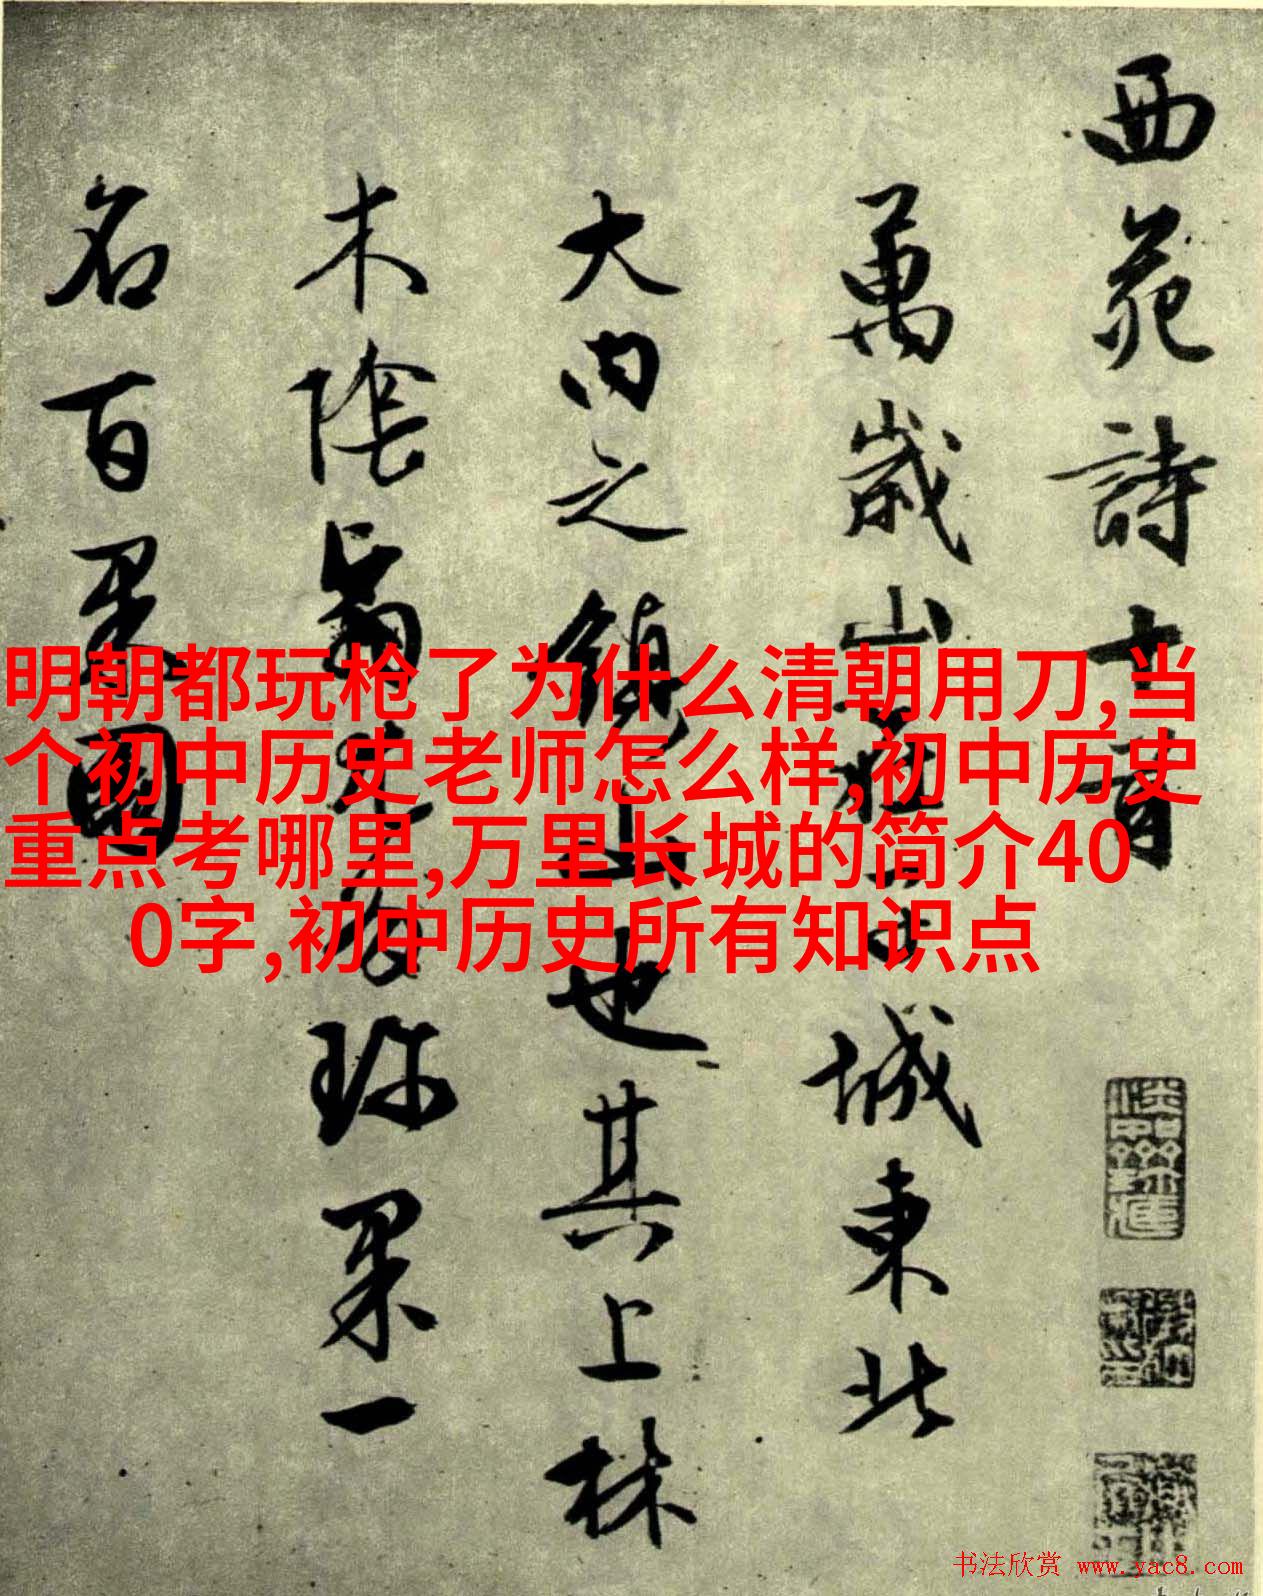 西苑詩十首
萬歲山在子城東北
大内之鎮山也其上林
木陰翳尤多珍果一
名百果園
明朝都玩枪了为什么清朝用刀,当
个初中历史老师怎么样,初中历史
重点考哪里,万里长城的简介40
0字,初中历史所有知识点
书法欣赏 www.yac8.com